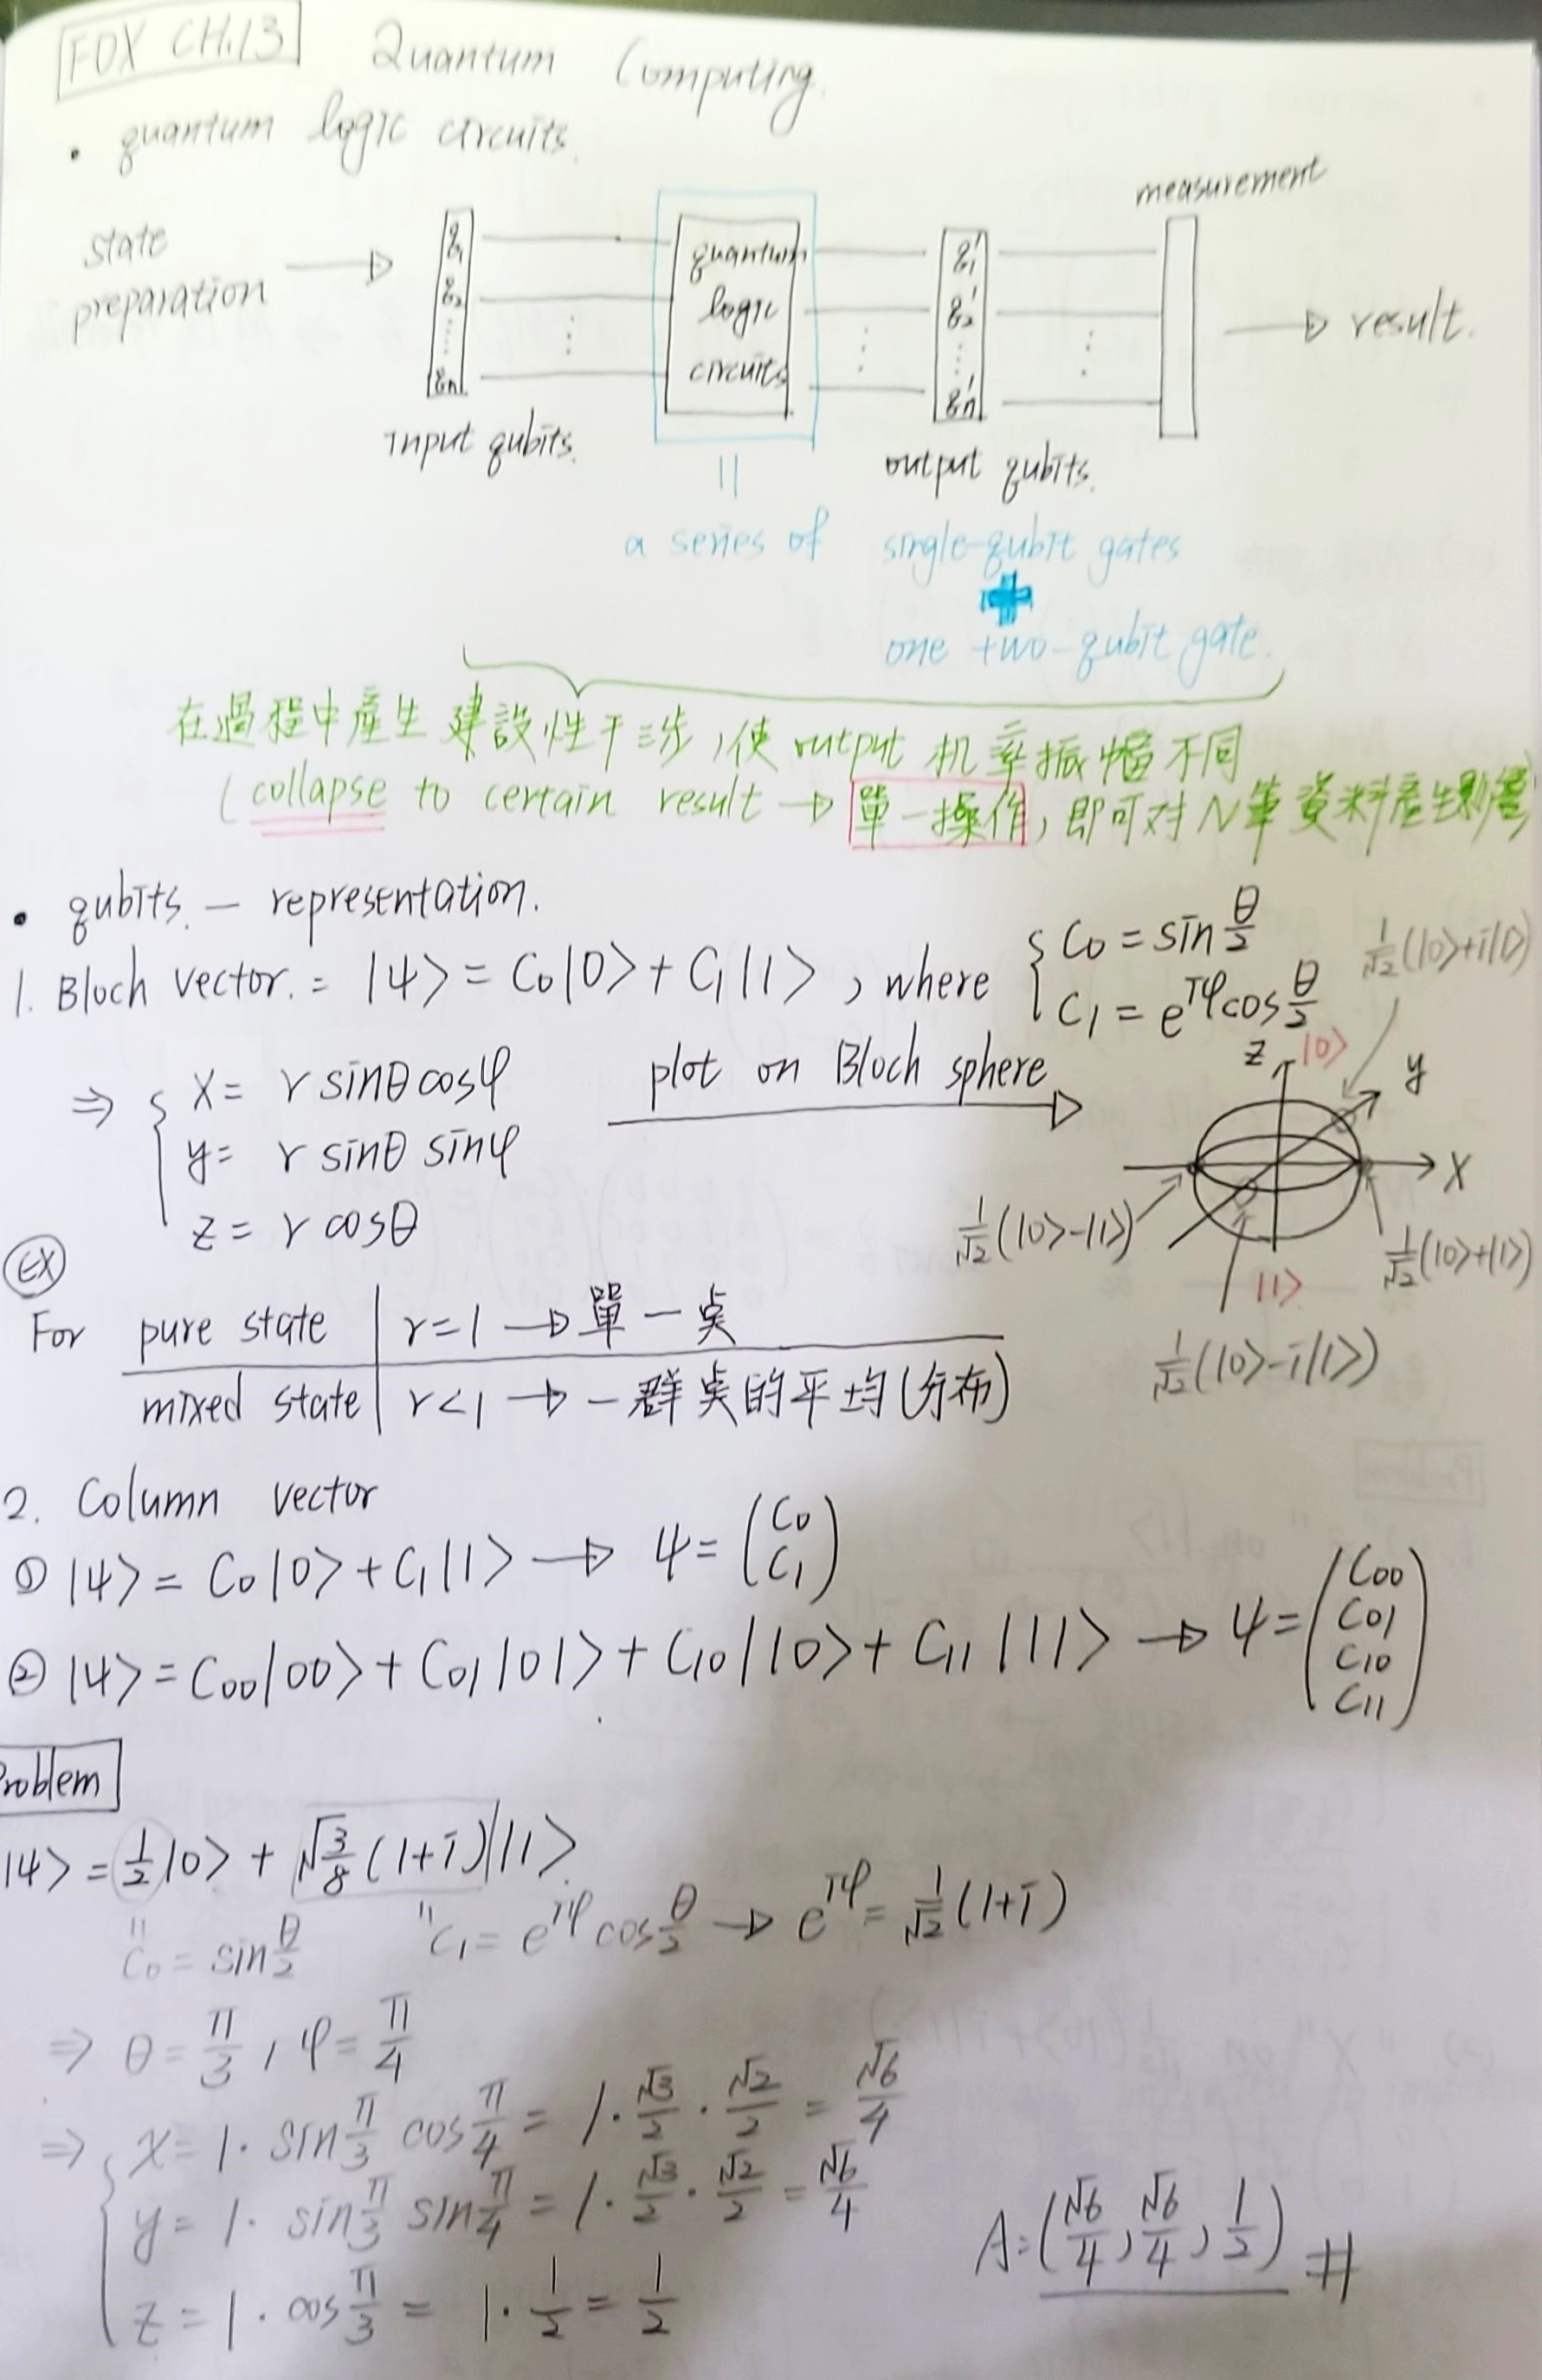 FOX CH.13 Quantum Computing.
• quantum logic circuits.
measurement
state preparation
q1 q2 ⋮ qn
quantum logic circuits
q1' q2' ⋮ qn'
result.
input qubits.
output qubits.
||
a series of single-qubit gates
+
one two-qubit gate.
在過程中產生建設性干涉,使 output 机率振幅不同
(collapse to certain result → 單一操作, 即可对 N 筆資料產生影響)
• qubits. – representation.
1. Bloch vector. = |ψ> = C0|0> + C1|1>, where { C0 = sin θ/2
C1 = e^{iφ} cos θ/2
1/√2(|0>+i|1>)
⇒ { x = r sinθ cosφ
y = r sinθ sinφ
z = r cosθ
plot on Bloch sphere
z |0>
y
x
1/√2(|0>-|1>)
1/√2(|0>+|1>)
|1>
1/√2(|0>-i|1>)
EX
For pure state | r=1 → 單一点
mixed state | r<1 → 一群点的平均(分布)
2. Column vector
① |ψ> = C0|0> + C1|1> → ψ = (C0 C1)
② |ψ> = C00|00> + C01|01> + C10|10> + C11|11> → ψ = (C00 C01 C10 C11)
Problem
|ψ> = 1/2|0> + √(3/8)(1+i)|1>
" C0 = sin θ/2 " C1 = e^{iφ} cos θ/2 → e^{iφ} = 1/√2(1+i)
⇒ θ = π/3, φ = π/4
⇒ { x = 1· sin π/3 cos π/4 = 1· √3/2 · √2/2 = √6/4
y = 1· sin π/3 sin π/4 = 1· √3/2 · √2/2 = √6/4
z = 1· cos π/3 = 1· 1/2 = 1/2
A: (√6/4, √6/4, 1/2) #